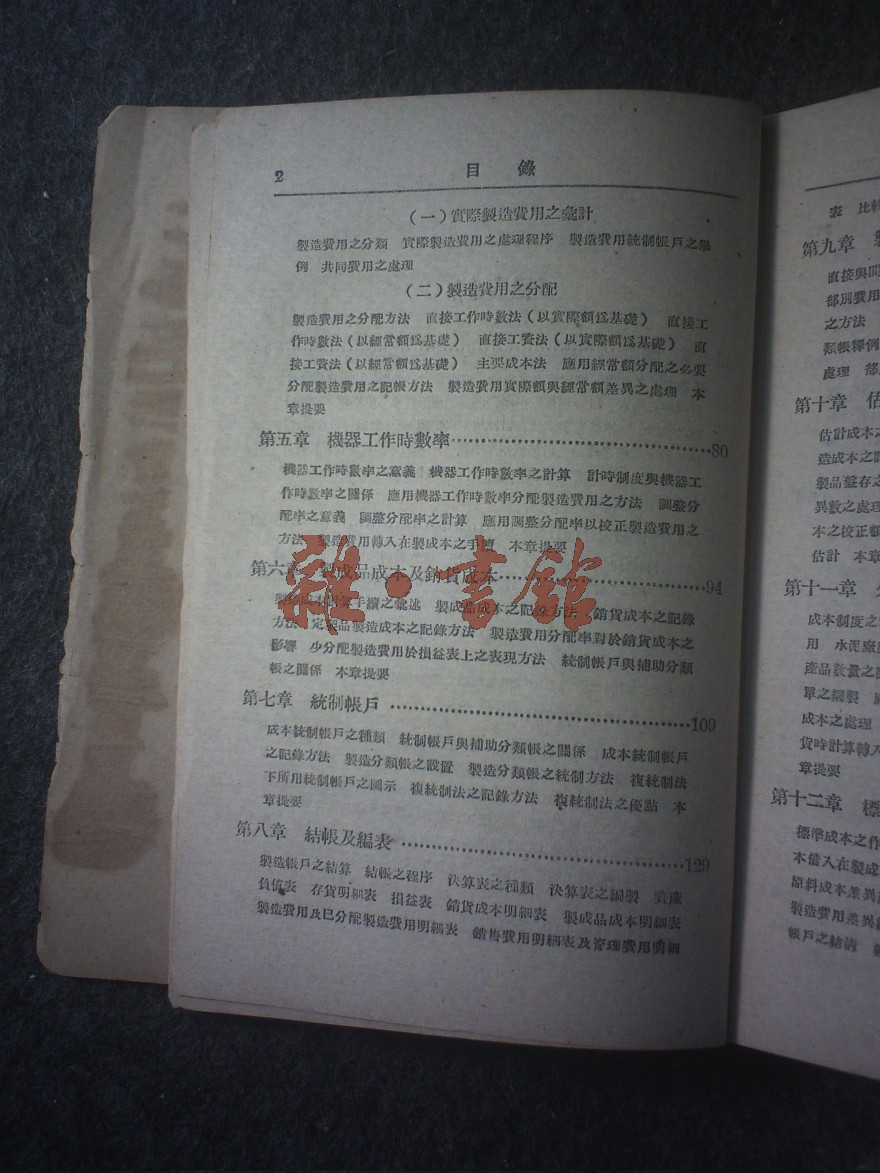 2
目錄
（一）實際製造費用之彙計
製造費用之分類 實際製造費用之處理程序 製造費用統制帳戶之舉
例 共同費用之處理
（二）製造費用之分配
製造費用之分配方法 直接工作時數法（以實際額爲基礎） 直接工
作時數法（以經常額爲基礎） 直接工資法（以實際額爲基礎） 直
接工資法（以經常額爲基礎） 主要成本法 應用經常額分配之必要
分配製造費用之記帳方法 製造費用實際額與經常額差異之處理 本
章提要
第五章 機器工作時數率 80
機器工作時數率之意義 機器工作時數率之計算 計時制度與機器工
作時數率之關係 應用機器工作時數率分配製造費用之方法 調整分
配率之意義 調整分配率之計算 應用調整分配率以校正製造費用之
方法 製造費用轉入在製成本之手續 本章提要
第六章 製成品成本及銷貨成本 94
製造成本計算手續之彙述 製成品成本之記錄方法 銷貨成本之記錄
方法 定製品製造成本之記錄方法 製造費用分配率對於銷貨成本之
影響 少分配製造費用於損益表上之表現方法 統制帳戶與補助分類
帳之關係 本章提要
第七章 統制帳戶 109
成本統制帳戶之種類 統制帳戶與補助分類帳之關係 成本統制帳戶
之記錄方法 製造分類帳之設置 製造分類帳之統制方法 複統制法
下所用統制帳戶之圖示 複統制法之記錄方法 複統制法之優點 本
章提要
第八章 結帳及編表 129
製造帳戶之結算 結帳之程序 決算表之種類 決算表之編製 資產
負債表 存貨明細表 損益表 銷貨成本明細表 製成品成本明細表
製造費用及已分配製造費用明細表 銷售費用明細表及管理費用明細
表 比較
第九章
直接與間
部別費用
之方法
類帳釋例
處理 部
第十章 估
估計成本之
造成本之記
製品盤存之
異數之處理
本之校正額
估計 本章
第十一章
成本制度之
用 水泥廠
產品數量之
單之編製
成本之處理
貨時計算轉入
章提要
第十二章 標
標準成本之作
本借入在製成
原料成本差異
製造費用差異
帳戶之結清
雜·書館